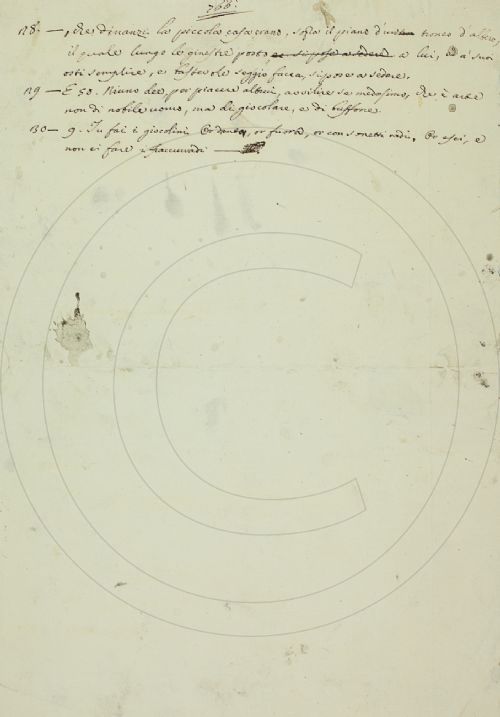 128. — , che dinanzi la piccola casa erano, sopra il piano d'un tronco d'albero,
il quale lungo le ginestre posto a lui, ed a' suoi
osti semplice, e facea, si pose a sedere.
129 — E 50. Niuno dee per piacere altrui, avvilire se medesimo, che è arte
non di nobile uomo, ma di giocolare, e di buffone.
130 — 9. Tu fai i giocolini Or dentro, or fuora, or con sonetti vadi, Or esci, e
non ci fare